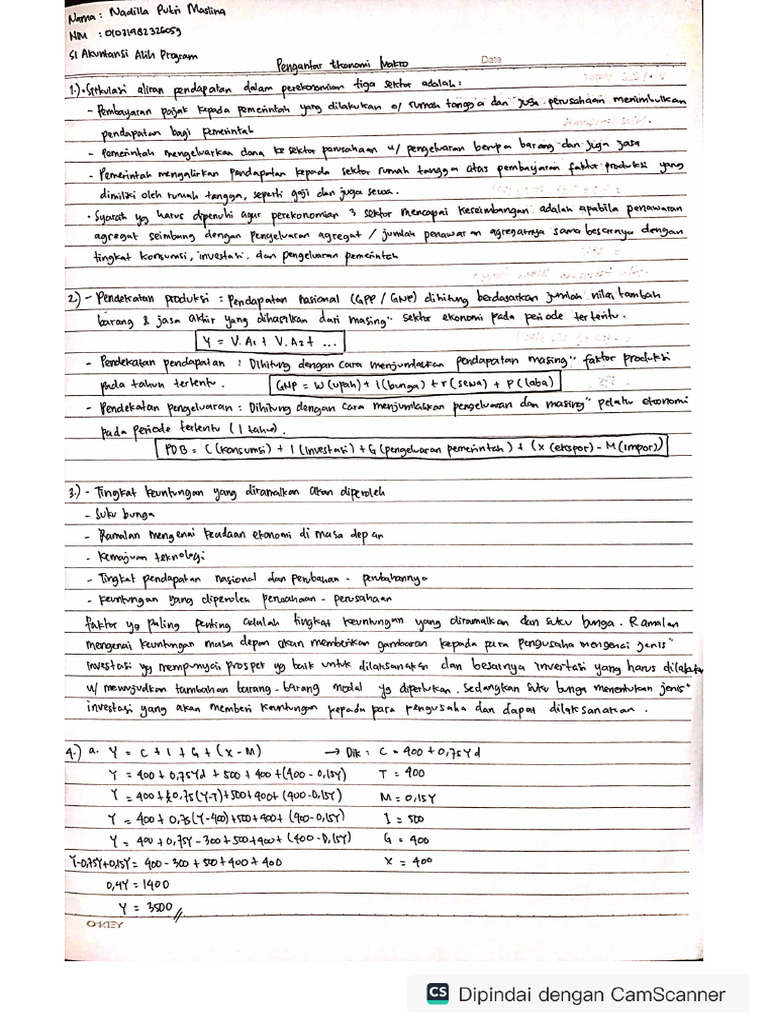 Nama : Nadilla Putri Maslina
NIM : 01031982326059
S1 Akuntansi Alih Program
Pengantar Ekonomi Makro
Date
1.) • Sirkulasi aliran pendapatan dalam perekonomian tiga sektor adalah :
- Pembayaran pajak kepada pemerintah yang dilakukan o/ rumah tangga dan juga perusahaan menimbulkan
pendapatan bagi pemerintah
- Pemerintah mengeluarkan dana ke sektor perusahaan u/ pengeluaran berupa barang dan juga jasa
- Pemerintah mengalirkan pendapatan kepada sektor rumah tangga atas pembayaran faktor produksi yang
dimiliki oleh rumah tangga, seperti gaji dan juga sewa.
• Syarat yg harus dipenuhi agar perekonomian 3 sektor mencapai keseimbangan adalah apabila penawaran
agregat seimbang dengan pengeluaran agregat / jumlah penawaran agregatnya sama besarnya dengan
tingkat konsumsi, investasi, dan pengeluaran pemerintah
2.) - Pendekatan produksi : Pendapatan nasional (GPP / GNP) dihitung berdasarkan jumlah nilai tambah
barang & jasa akhir yang dihasilkan dari masing" sektor ekonomi pada periode tertentu.
Y = V.A1 + V.A2 + ...
- Pendekatan pendapatan : Dihitung dengan cara menjumlahkan pendapatan masing" faktor produksi
pada tahun tertentu. GNP = W (upah) + I (bunga) + r (sewa) + P (laba)
- Pendekatan pengeluaran : Dihitung dengan cara menjumlahkan pengeluaran dan masing" pelaku ekonomi
pada periode tertentu (1 tahun).
PDB = C (konsumsi) + I (Investasi) + G (pengeluaran pemerintah) + (X (ekspor) - M (impor))
3.) - Tingkat keuntungan yang diramalkan akan diperoleh
- Suku bunga
- Ramalan mengenai keadaan ekonomi di masa depan
- Kemajuan teknologi
- Tingkat pendapatan nasional dan perubahan - perubahannya
- Keuntungan yang diperoleh perusahaan - perusahaan
faktor yg paling penting adalah tingkat keuntungan yang diramalkan dan suku bunga. Ramalan
mengenai keuntungan masa depan akan memberikan gambaran kepada para pengusaha mengenai jenis"
investasi yg mempunyai prospek yg baik untuk dilaksanakan dan besarnya investasi yang harus dilakukan
u/ mewujudkan tambahan barang-barang modal yg diperlukan. Sedangkan suku bunga menentukan jenis"
investasi yang akan memberi keuntungan kepada para pengusaha dan dapat dilaksanakan.
4.) a. Y = C + I + G + (X - M) → Dik : C = 400 + 0,75 Yd
Y = 400 + 0,75Yd + 500 + 400 + (400 - 0,15Y) T = 400
Y = 400 + 0,75 (Y-T) + 500 + 400 + (400 - 0,15Y) M = 0,15Y
Y = 400 + 0,75 (Y-400) + 500 + 400 + (400 - 0,15Y) I = 500
Y = 400 + 0,75Y - 300 + 500 + 400 + (400 - 0,15Y) G = 400
Y-0,75Y+0,15Y = 400 - 300 + 500 + 400 + 400 X = 400
0,4Y = 1400
Y = 3500 //
OKEY
CS Dipindai dengan CamScanner